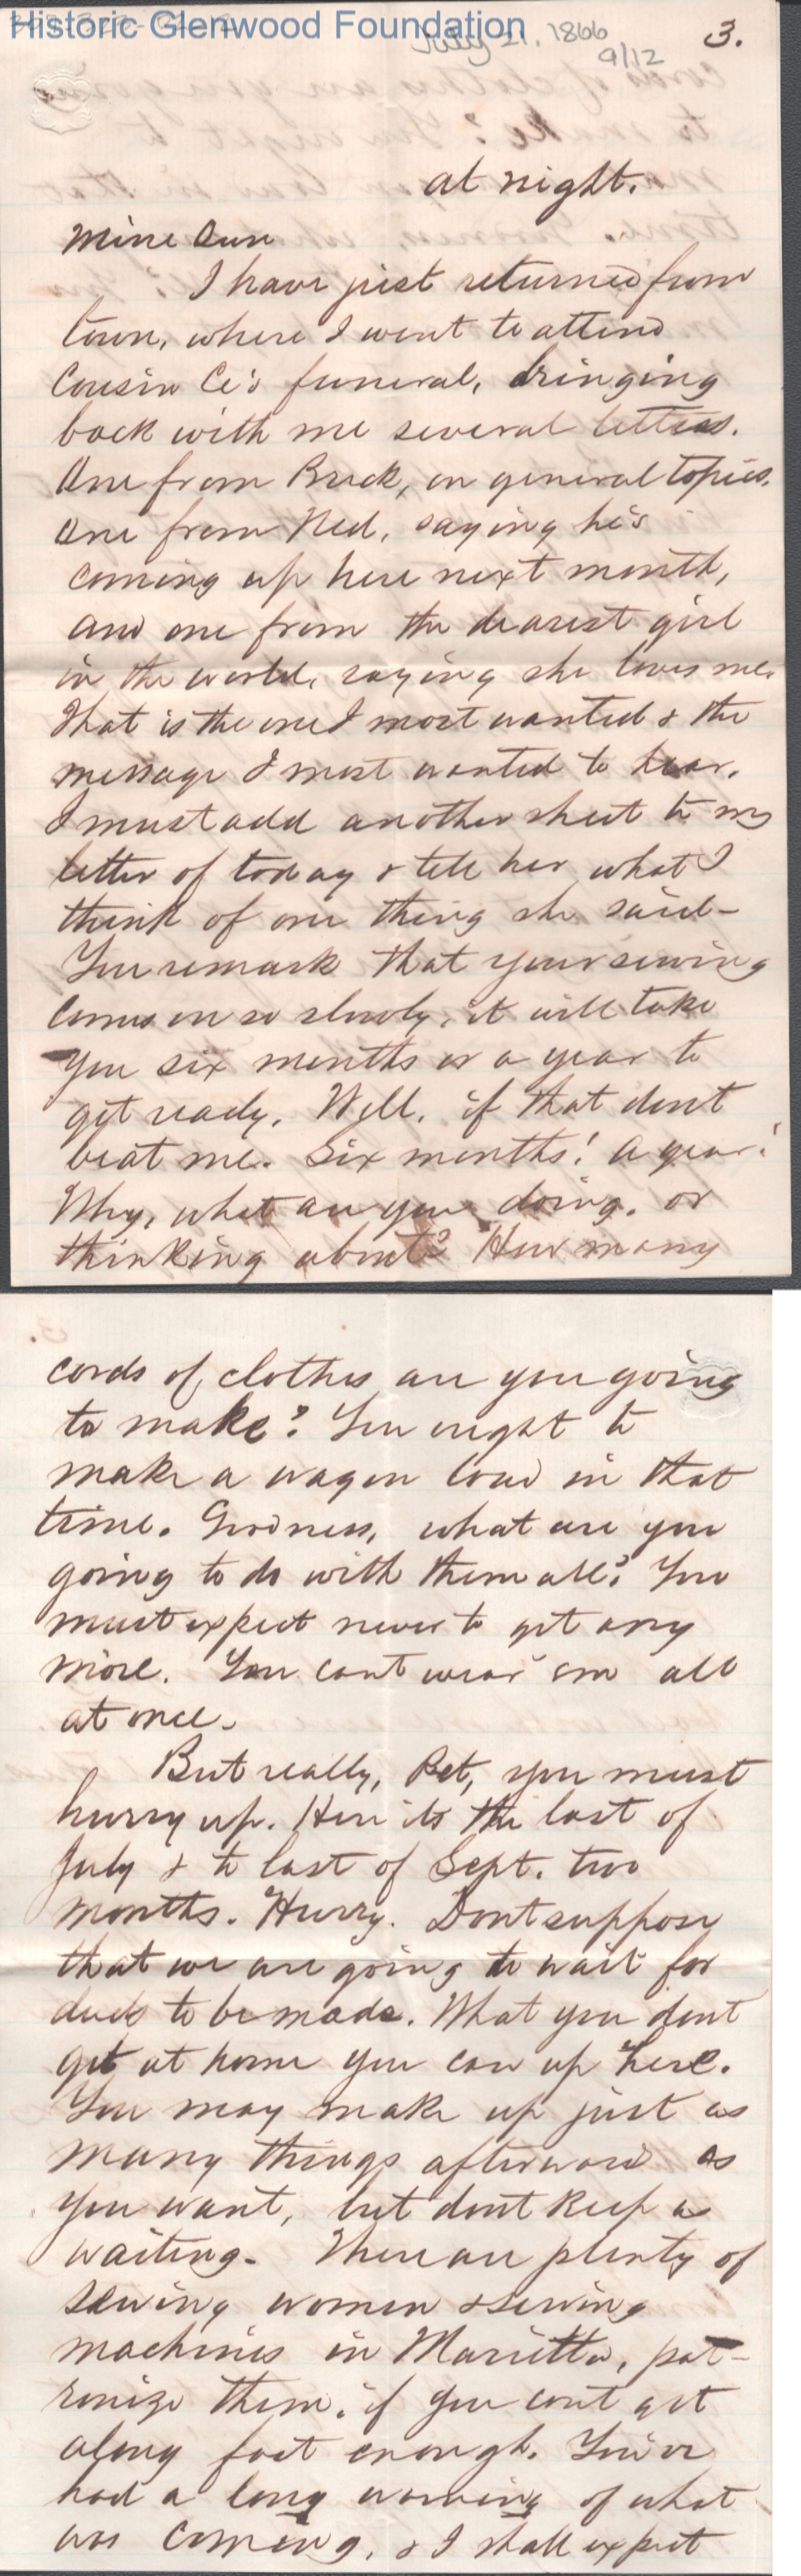 Historic Glenwood Foundation
July 21, 1866
9/12
3.
at night.
Mine Own
I have just returned from
town, where I went to attend
Cousin Ce's funeral, bringing
back with me several letters.
One from Buck, on general topics.
One from Ned, saying he's
coming up here next month,
and one from the dearest girl
in the world, saying she loves me.
That is the one I most wanted & the
message I most wanted to hear.
I must add another sheet to my
letter of today & tell her what I
think of one thing she said-
You remark that your sewing
comes on so slowly, it will take
you six months or a year to
get ready. Well, if that dont
beat me. Six months! A year!
Why, what are you doing, or
thinking about? How many
cords of clothes are you going
to make? You ought to
make a wagon load in that
time. Goodness, what are you
going to do with them all? You
must expect never to get any
more. You cant wear em all
at once.
But really, Pet, you must
hurry up. Here its the last of
July & to last of Sept. two
months. Hurry. Dont suppose
that we are going to wait for
duds to be made. What you dont
get at home you can up here.
You may make up just as
many things afterward as
you want, but dont keep us
waiting- There are plenty of
sewing women & sewing
machines in Marietta, pat-
ronize them, if you cant get
along fast enough. You've
had a long warning of what
was coming, & I shall expect